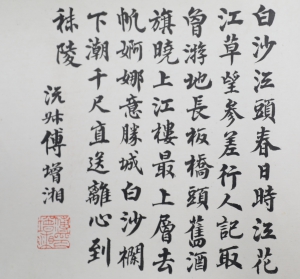 白沙江頭春日時江花
江草望參差行人記取
曾游地長板橋頭舊酒
旗曉上江樓最上層去
帆婀娜意勝城白沙欄
下潮千尺直送離心到
秣陵
沅叔傅增湘